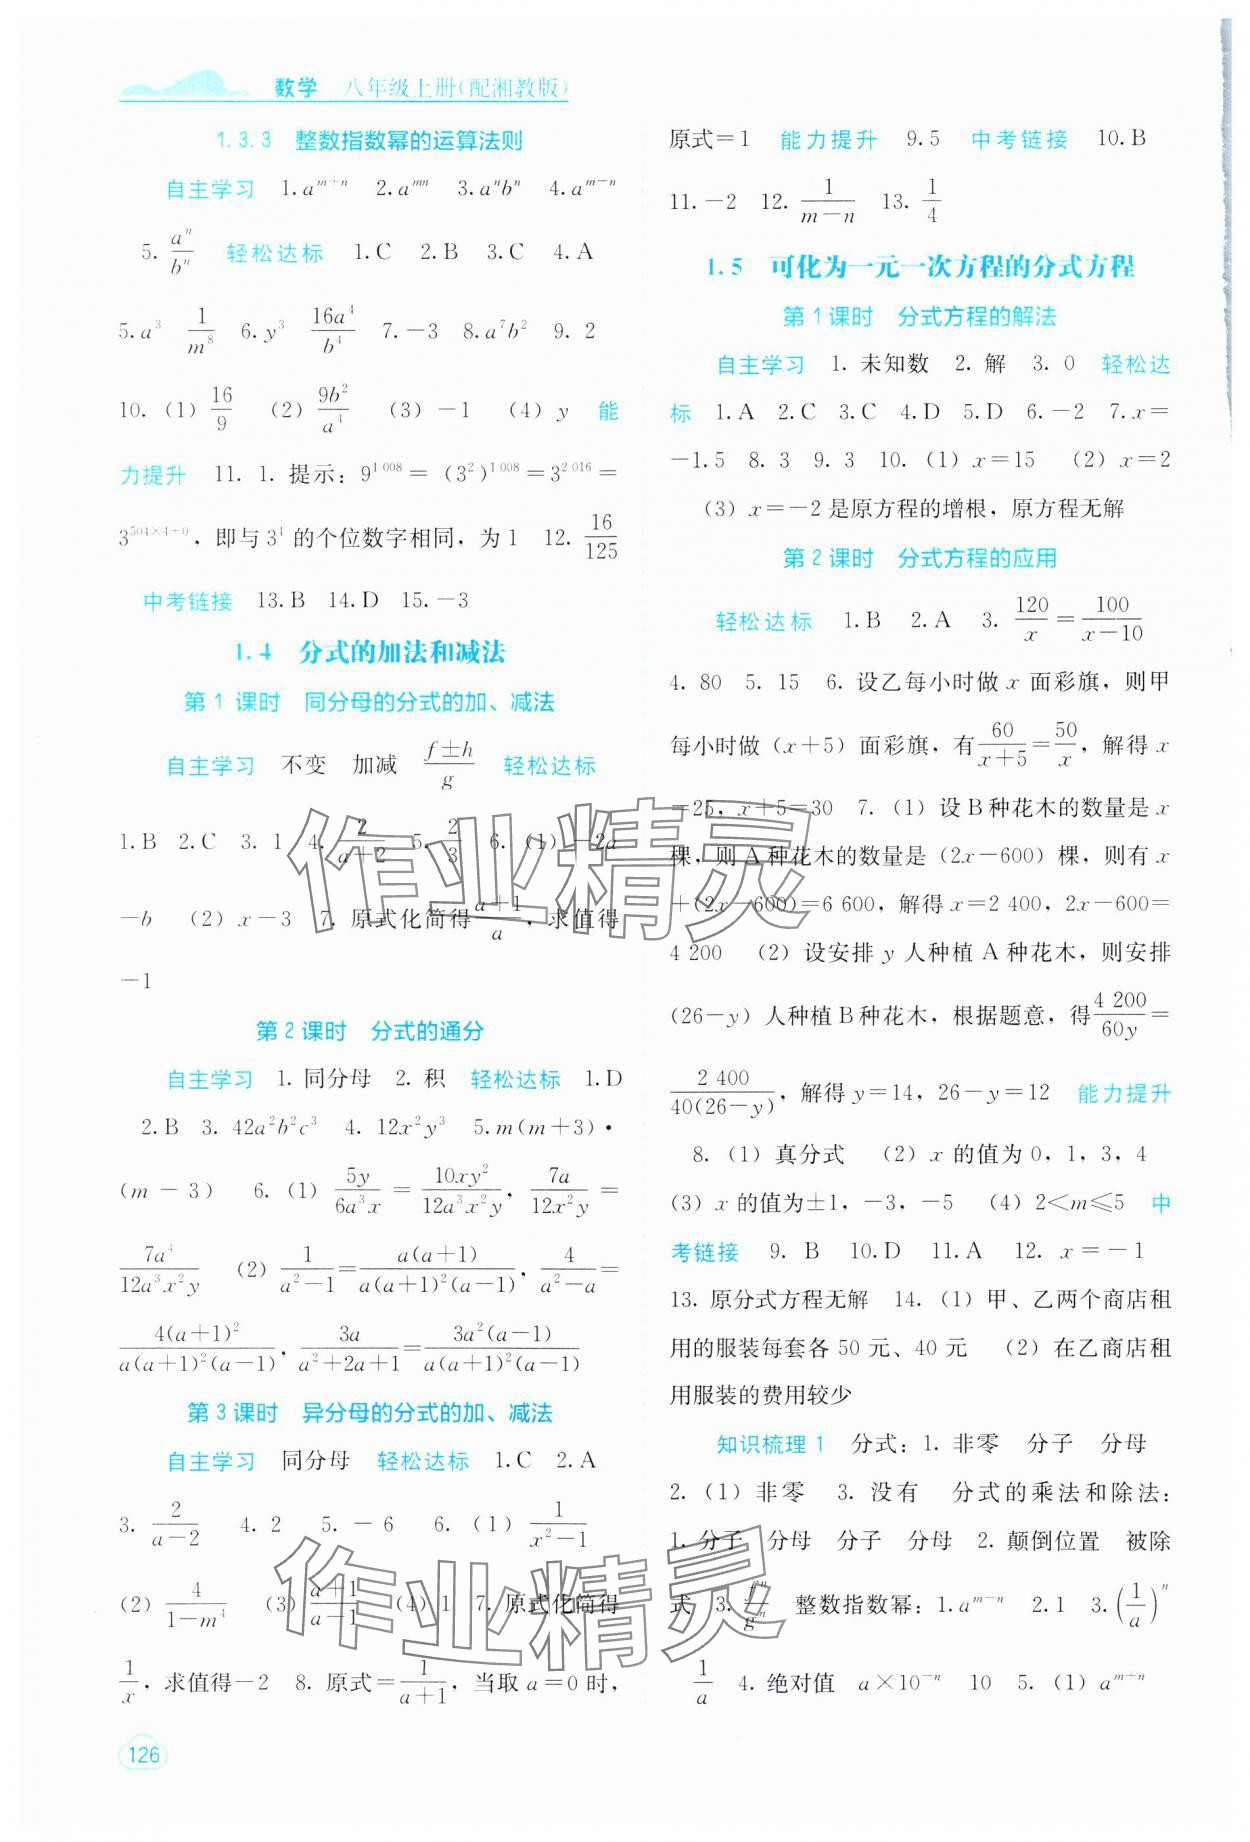 数学 八年级上册(配湘教版)
1.3.3 整数指数幂的运算法则
自主学习 1.a^{m+n} 2.a^{mn} 3.a^n b^n 4.a^{m-n}
5.a^n/b^n 轻松达标 1.C 2.B 3.C 4.A
5.a^3 1/m^8 6.y^3 16a^4/b^4 7.-3 8.a^7b^2 9.2
10.(1)16/9 (2)9b^2/a^4 (3)-1 (4)y 能
力提升 11.1.提示:9^{1 008}=(3^2)^{1 008}=3^{2 016}=
3^{504×4+0},即与3^4的个位数字相同,为1 12.16/125
中考链接 13.B 14.D 15.-3
1.4 分式的加法和减法
第1课时 同分母的分式的加、减法
自主学习 不变 加减 (f±h)/g 轻松达标
1.B 2.C 3.1 4.2/(a-2) 5.2/3 6.(1)-2a
-b (2)x-3 7.原式化简得(a+1)/a,求值得
-1
第2课时 分式的通分
自主学习 1.同分母 2.积 轻松达标 1.D
2.B 3.42a^2b^2c^3 4.12x^2y^3 5.m(m+3)·
(m-3) 6.(1)5y/(6a^3x)=10xy^2/(12a^3x^2y),7a/(12x^2y)=
7a^4/(12a^3x^2y) (2)1/(a^2-1)=a(a+1)/(a(a+1)^2(a-1)),4/(a^2-a)=
4(a+1)^2/(a(a+1)^2(a-1)),3a/(a^2+2a+1)=3a^2(a-1)/(a(a+1)^2(a-1))
第3课时 异分母的分式的加、减法
自主学习 同分母 轻松达标 1.C 2.A
3.2/(a-2) 4.2 5.-6 6.(1)1/(x^2-1)
(2)4/(1-m^4) (3)(a+1)/(a-1) (4)1 7.原式化简得
1/x,求值得-2 8.原式=1/(a+1),当取a=0时,
126
原式=1 能力提升 9.5 中考链接 10.B
11.-2 12.1/(m-n) 13.1/4
1.5 可化为一元一次方程的分式方程
第1课时 分式方程的解法
自主学习 1.未知数 2.解 3.0 轻松达
标 1.A 2.C 3.C 4.D 5.D 6.-2 7.x=
-1.5 8.3 9.3 10.(1)x=15 (2)x=2
(3)x=-2是原方程的增根,原方程无解
第2课时 分式方程的应用
轻松达标 1.B 2.A 3.120/x=100/(x-10)
4.80 5.15 6.设乙每小时做x面彩旗,则甲
每小时做(x+5)面彩旗,有60/(x+5)=50/x,解得x
=25,x+5=30 7.(1)设B种花木的数量是x
棵,则A种花木的数量是(2x-600)棵,则有x
+(2x-600)=6 600,解得x=2 400,2x-600=
4 200 (2)设安排y人种植A种花木,则安排
(26-y)人种植B种花木,根据题意,得4 200/60y=
2 400/(40(26-y)),解得y=14,26-y=12 能力提升
8.(1)真分式 (2)x的值为0,1,3,4
(3)x的值为±1,-3,-5 (4)2<m≤5 中
考链接 9.B 10.D 11.A 12.x=-1
13.原分式方程无解 14.(1)甲、乙两个商店租
用的服装每套各50元、40元 (2)在乙商店租
用服装的费用较少
知识梳理1 分式:1.非零 分子 分母
2.(1)非零 3.没有 分式的乘法和除法:
1.分子 分母 分子 分母 2.颠倒位置 被除
式 3.f^n/g^n 整数指数幂:1.a^{m-n} 2.1 3.(1/a)^n
1/a 4.绝对值 a×10^{-n} 10 5.(1)a^{m+n}
作业精灵
作业精灵